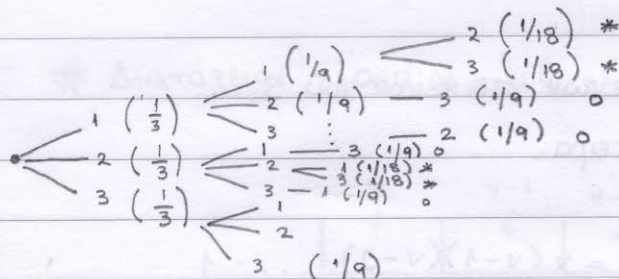 2 (1/18) *
1 (1/9) 3 (1/18) *
1 (1/3) 2 (1/9) — 3 (1/9) o
3 ⋮ — 2 (1/9) o
2 (1/3) 1 — 3 (1/9) o
2 1 (1/18) *
3 (1/18) *
3 — 1 (1/9) o
3 (1/3) 1
2
3 (1/9)